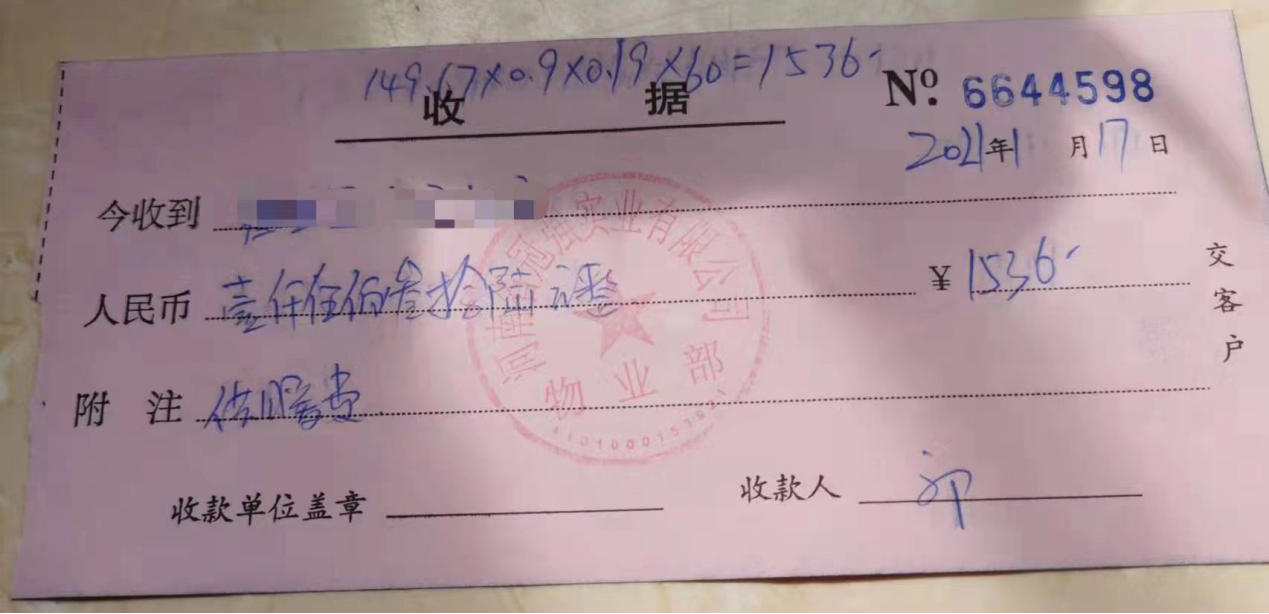 149.67×0.9×0.19×60=1536
收 据
№ 6644598
2021年1月17日
今收到
人民币 壹仟伍佰叁拾陆元整 ¥1536
附 注 供暖费
收款单位盖章 收款人
交客户
河南冠强实业有限公司
物业部
4101000153921